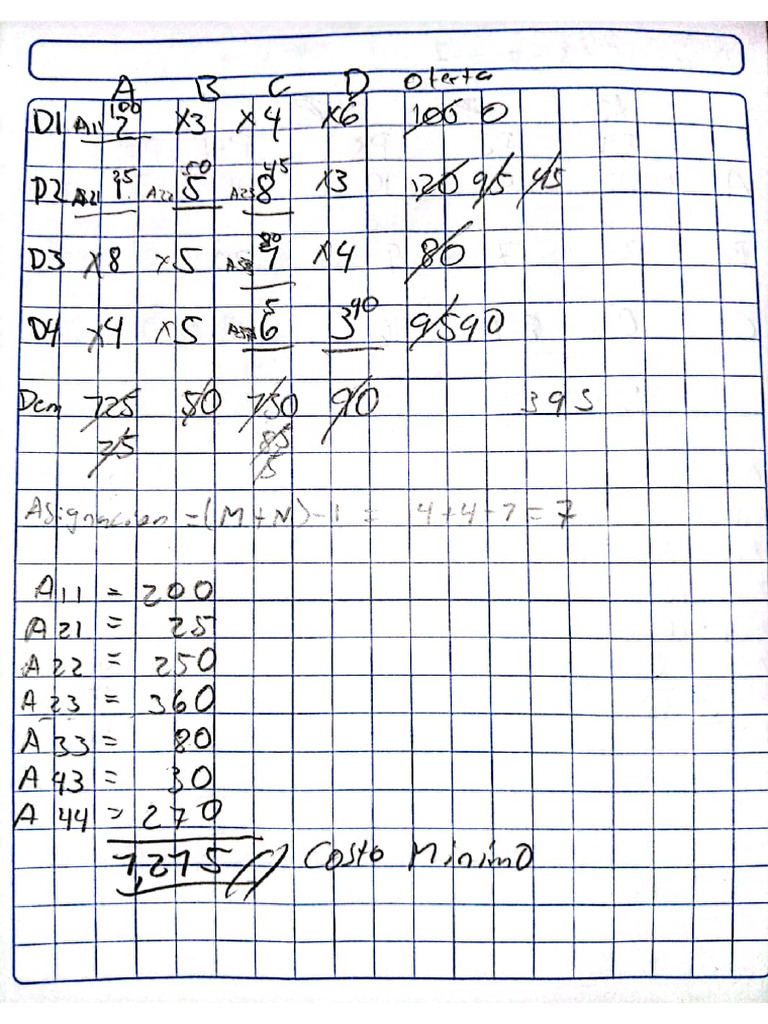 A B C D Oferta
D1 A11 2 100 x3 x4 x6 100 0
D2 A21 1 25 A22 5 50 A23 8 45 x3 120 95 45
D3 x8 x5 A33 1 80 x4 80
D4 x4 x5 6 5 3 90 95 90
Dem 125 50 130 90 395
25 85
5
Asignacion = (M+N)-1 = 4+4-1=7
A11 = 200
A21 = 25
A22 = 250
A23 = 360
A33 = 80
A43 = 30
A44 = 270
1,215 // Costo Minimo